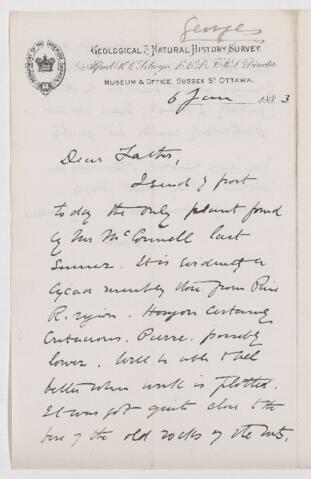 George
GEOLOGICAL & NATURAL HISTORY SURVEY.
Alfred R. C. Selwyn F.R.S. F.G.S. Director.
MUSEUM & OFFICE, SUSSEX ST OTTAWA.
6 Jan 1883
Dear Father,
I send by post
to day the only plant found
by Mr McConnell last
Summer. It is evidently a
Cycad resembling those from Pine
R. region. Horizon certainly
Cretaceous. Pierre. possibly
lower. Will be able to tell
better when work is plotted.
It was got quite close to the
base of the old rocks of the mts.